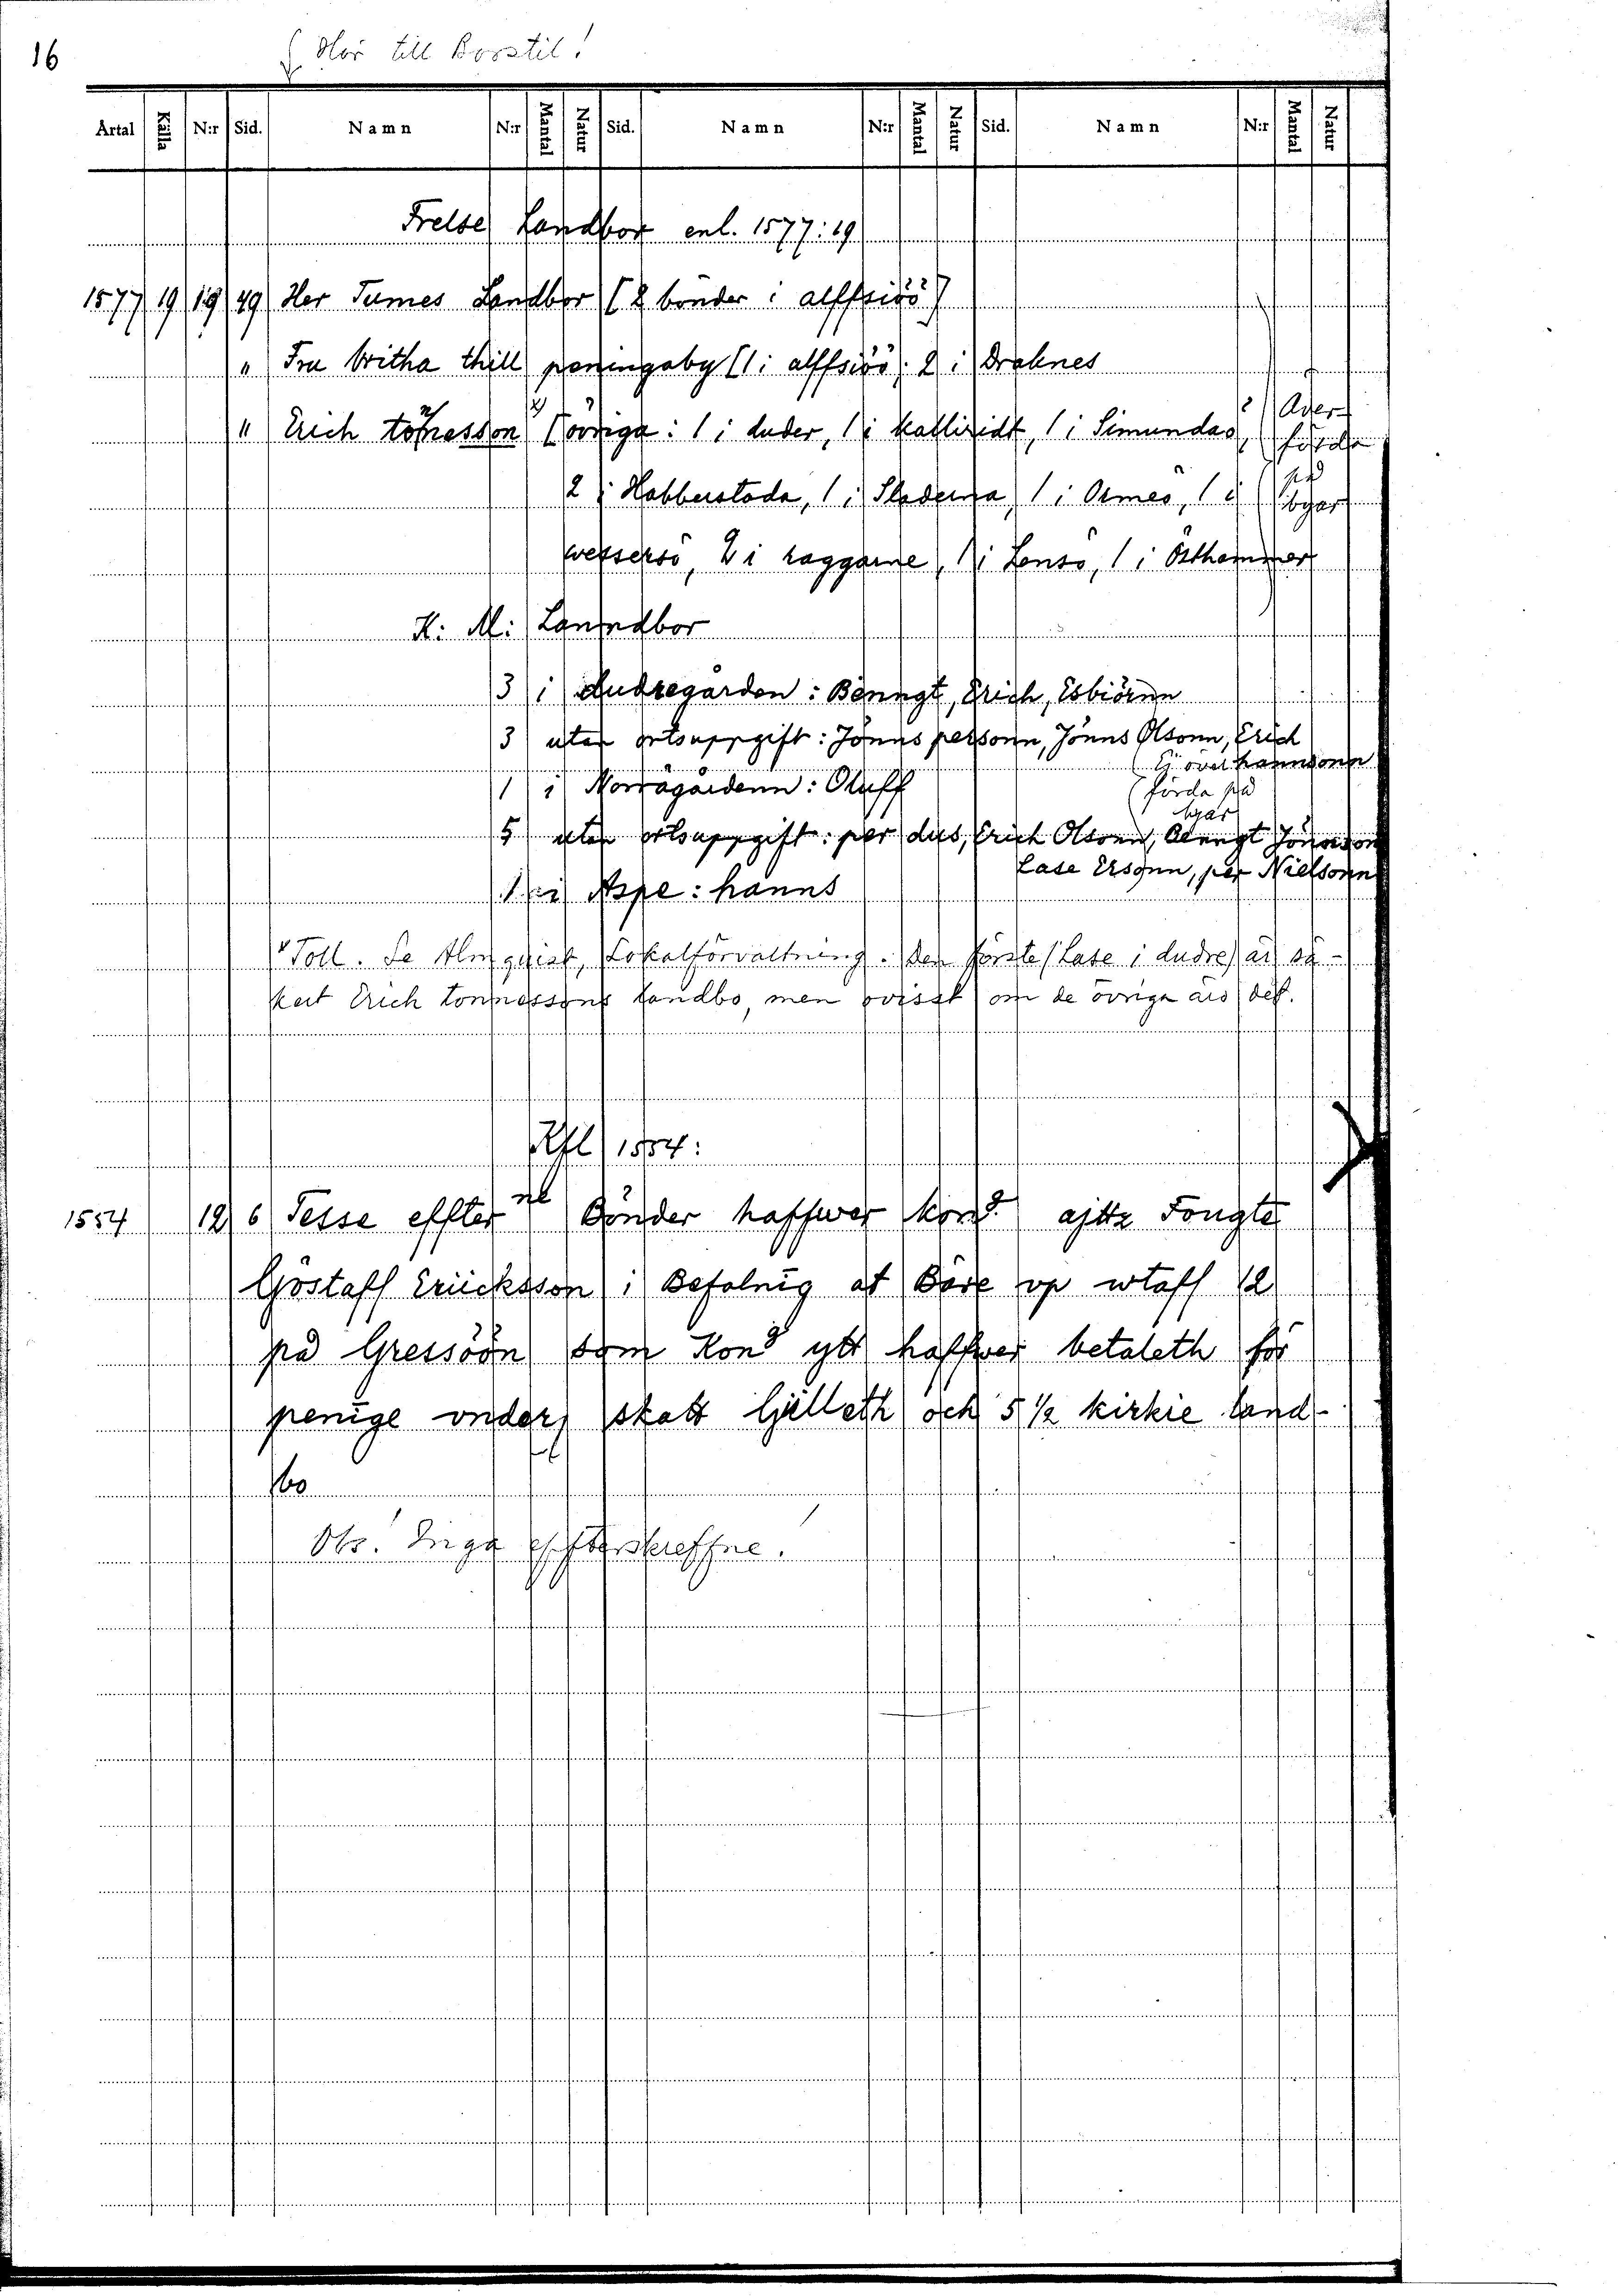 16
Hör till Borstil!
Årtal Källa N:r Sid. Namn N:r Mantal Natur Sid. Namn N:r Mantal Natur Sid. Namn N:r Mantal Natur
Frelse Landbor enl. 1577:19
1577 19 19 49 Her Tumes Landbor [2 bönder i alffsiöö]
" Fru britha thill peningaby [1 i alffsiöö; 2 i Draknes
" Erich tönnesson x) [övriga: 1 i duder, 1 i kallizidt, 1 i Simundaö, Över-
förda
2 i Habberstada, 1 i Sladerna, 1 i Ormeö, 1 i på
byar
wesserö, 2 i raggarne, 1 i Lensö, 1 i Östhammer
K: M: Lanndbor
3 i dudregården: Benngt, Erich, Esbiörnn
3 utan ortsuppgift: Jönns personn, Jönns Olsonn, Erich
hannsonn
Ej över
1 i Norrågårdenn: Oluff förda på
byar
5 utan ortsuppgift: per dus, Erich Olsonn, Benngt Jönsson
Lase Ersonn, per Nielsonn
1 i Aspe: hanns
x Toll. Se Almquist, Lokalförvaltning. Den förste (Lase i dudre) är sä-
kert Erich tonnessons landbo, men ovisst om de övriga äro det.
Kfl 1554:
1554 12 6 Tesse effter ne Bönder haffwer kong ajttz Fougte
Göstaff Eriicksson i Befalnig at Bäre vp wtaff 12
på Gressöön som Kong ytt haffwer betaleth för
penige vnder skatt Gälleth och 5 1/2 kirkie land-
bo
Obs! Inga effterskreffne!